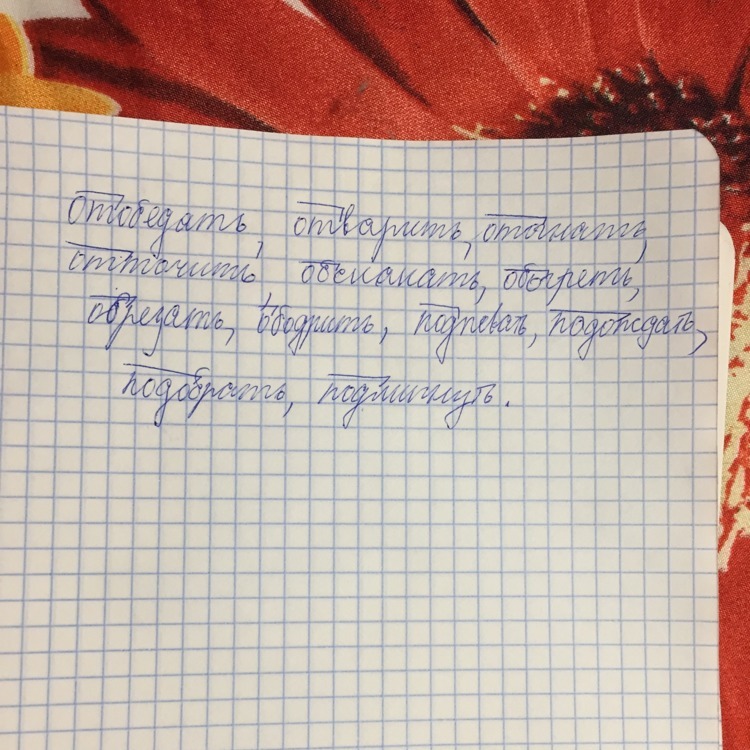 отобедать, отварить, отогнать,
отточить, обскакать, обогреть,
обрезать, ободрить, подпевать, подождать,
подобрать, подмигнуть.